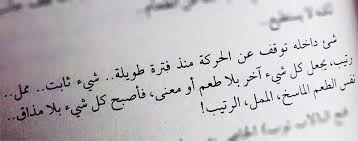 لكنه لا يستطيع..
شئ داخله توقف عن الحركة منذ فترة طويلة.. شيء ثابت.. ممل..
رتيب، يجعل كل شيء آخر بلا طعم أو معنى، فأصبح كل شيء بلا مذاق..
نفس الطعم الماسخ، الممل، الرتيب!